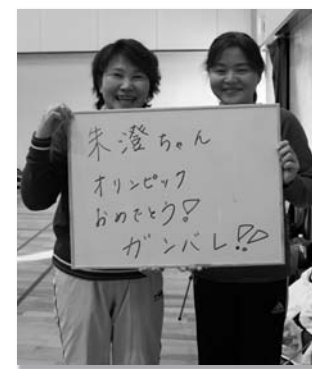 朱澄ちゃん
オリンピック
おめでとう!
ガンバレ!!